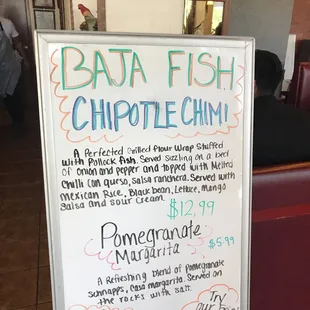 BAJA FISH
CHIPOTLE CHIMI
A Perfected Grilled Flour Wrap Stuffed
with Pollock fish. Served Sizzling on a bed
of onion and pepper and topped with Melted
Chilli con queso, salsa ranchera. Served with
Mexican Rice, Black bean, Lettuce, Mango
Salsa and sour cream.
$12,99
Pomegranate
Margarita $5.99
A Refreshing blend of Pomegranate
schnapps, Casa margarita. Served on
the rocks with salt.
TRY
our